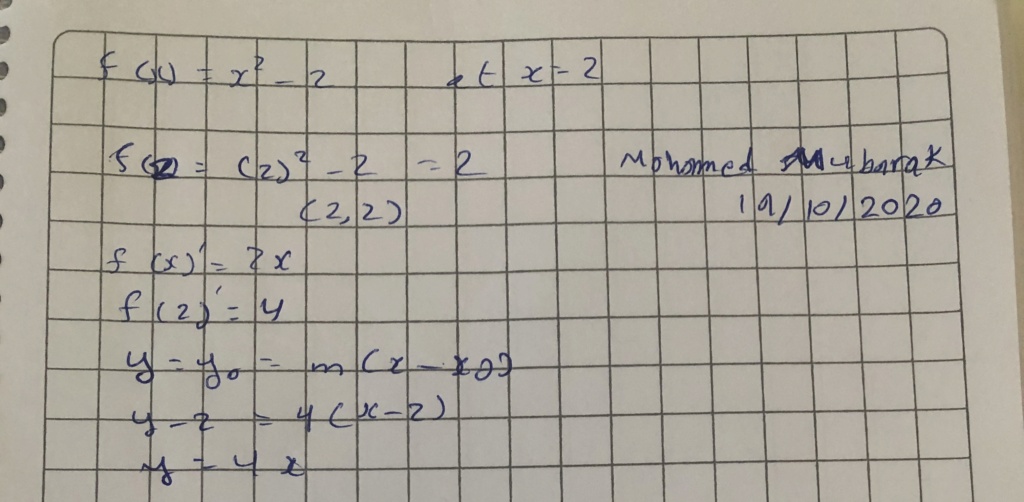 f(x) = x² - 2 at x = 2
f(2) = (2)² - 2 = 2
Mohommed Mubarak
(2,2)
19/10/2020
f(x)' = 2x
f(2)' = 4
y - y₀ = m(x - x₀)
y - 2 = 4(x - 2)
y = 4x